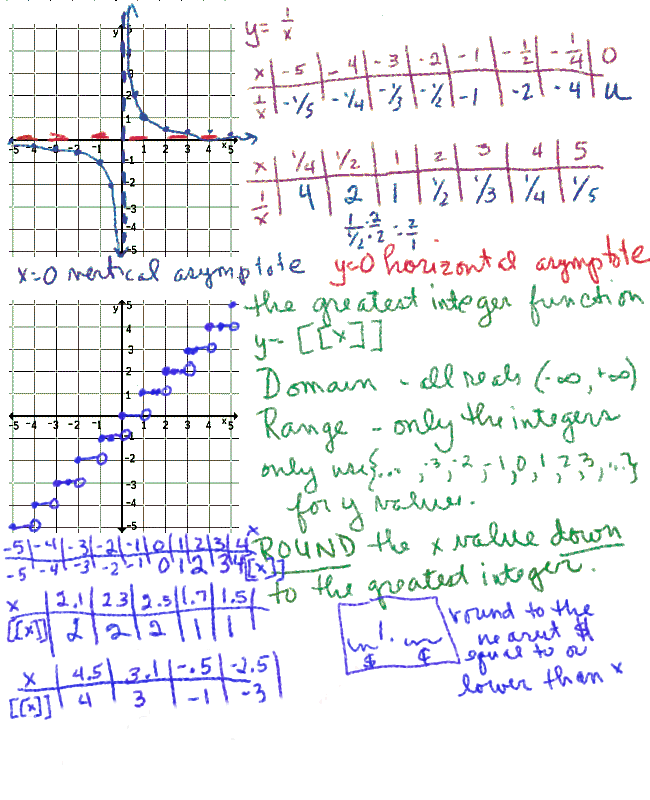 y= 1/x
x | -5 | -4 | -3 | -2 | -1 | -1/2 | -1/4 | 0
1/x | -1/5 | -1/4 | -1/3 | -1/2 | -1 | -2 | -4 | u
x | 1/4 | 1/2 | 1 | 2 | 3 | 4 | 5
1/x | 4 | 2 | 1 | 1/2 | 1/3 | 1/4 | 1/5
1/(1/2) · 2/2 = 2/1
y
5
2
1
-5 -4 -3 -2 -1 1 2 3 4 x 5
-1
-2
-3
-4
-5
x=0 vertical asymptote
y=0 horizontal asymptote
the greatest integer function
y= [[x]]
Domain - all reals (-∞, +∞)
Range - only the integers
only use {..., -3, -2, -1, 0, 1, 2, 3, ...}
for y values.
ROUND the x value down
to the greatest integer.
y 5
4
3
2
1
-5 -4 -3 -2 -1 1 2 3 4 x 5
-1
-2
-3
-4
-5
-5 | -4 | -3 | -2 | -1 | 0 | 1 | 2 | 3 | 4 x
-5 | -4 | -3 | -2 | -1 | 0 | 1 | 2 | 3 | 4 [[x]]
x | 2.1 | 2.3 | 2.5 | 1.7 | 1.5
[[x]] | 2 | 2 | 2 | 1 | 1
x | 4.5 | 3.1 | -.5 | -2.5
[[x]] | 4 | 3 | -1 | -3
round to the
nearest #
equal to or
lower than x